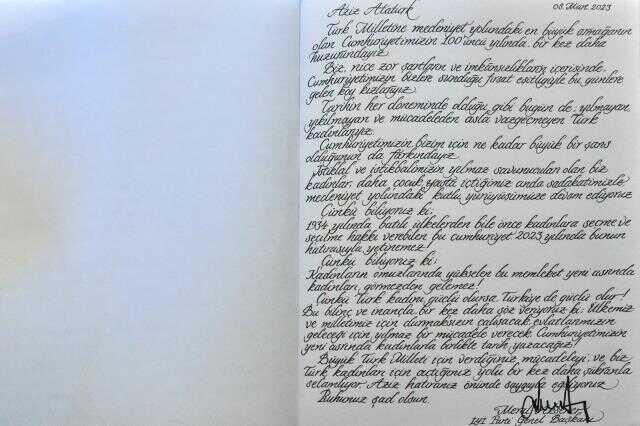 Aziz Atatürk 08. Mart. 2023
Türk Milletine medeniyet yolundaki en büyük armağanın
olan Cumhuriyetimizin 100'üncü yılında, bir kez daha
huzurundayız.
Biz, nice zor şartların ve imkânsızlıkların içerisinde
Cumhuriyetimizin bizlere sunduğu fırsat eşitliğiyle bu günlere
gelen köy kızlarıyız.
Tarihin her döneminde olduğu gibi bugün de, yılmayan
yıkılmayan ve mücadeleden asla vazgeçmeyen Türk
kadınlarıyız.
Cumhuriyetimizin bizim için ne kadar büyük bir şans
olduğunun da farkındayız.
İstiklal ve istikbalimizin yılmaz savunucuları olan biz
kadınlar, daha çocuk yaşta içtiğimiz anda sadakatimizle
medeniyet yolundaki kutlu yürüyüşümüze devam ediyoruz.
Çünkü biliyoruz ki;
1934 yılında batılı ülkelerden bile önce kadınlara seçme ve
seçilme hakkı verebilen bu cumhuriyet 2023 yılında bunun
hatırasıyla yetinemez!
Çünkü biliyoruz ki;
Kadınların omuzlarında yükselen bu memleket yeni asrında
kadınları, görmezden gelemez!
Çünkü Türk kadını güçlü olursa, Türkiye de güçlü olur!
Bu bilinç ve inançla, bir kez daha söz veriyoruz ki; Ülkemiz
ve milletimiz için durmaksızın çalışacak, evlatlarımızın
geleceği için yılmaz bir mücadele verecek, Cumhuriyetimizin
yeni asrında kadınlarla birlikte tarih yazacağız!
Büyük Türk Milleti için verdiğiniz mücadeleyi, ve biz
Türk kadınları için açtığınız yolu bir kez daha şükranla
selamlıyor, Aziz hatıranız önünde saygıyla eğiliyoruz.
Ruhunuz şad olsun.
Meral
İYİ Parti Genel Başkanı